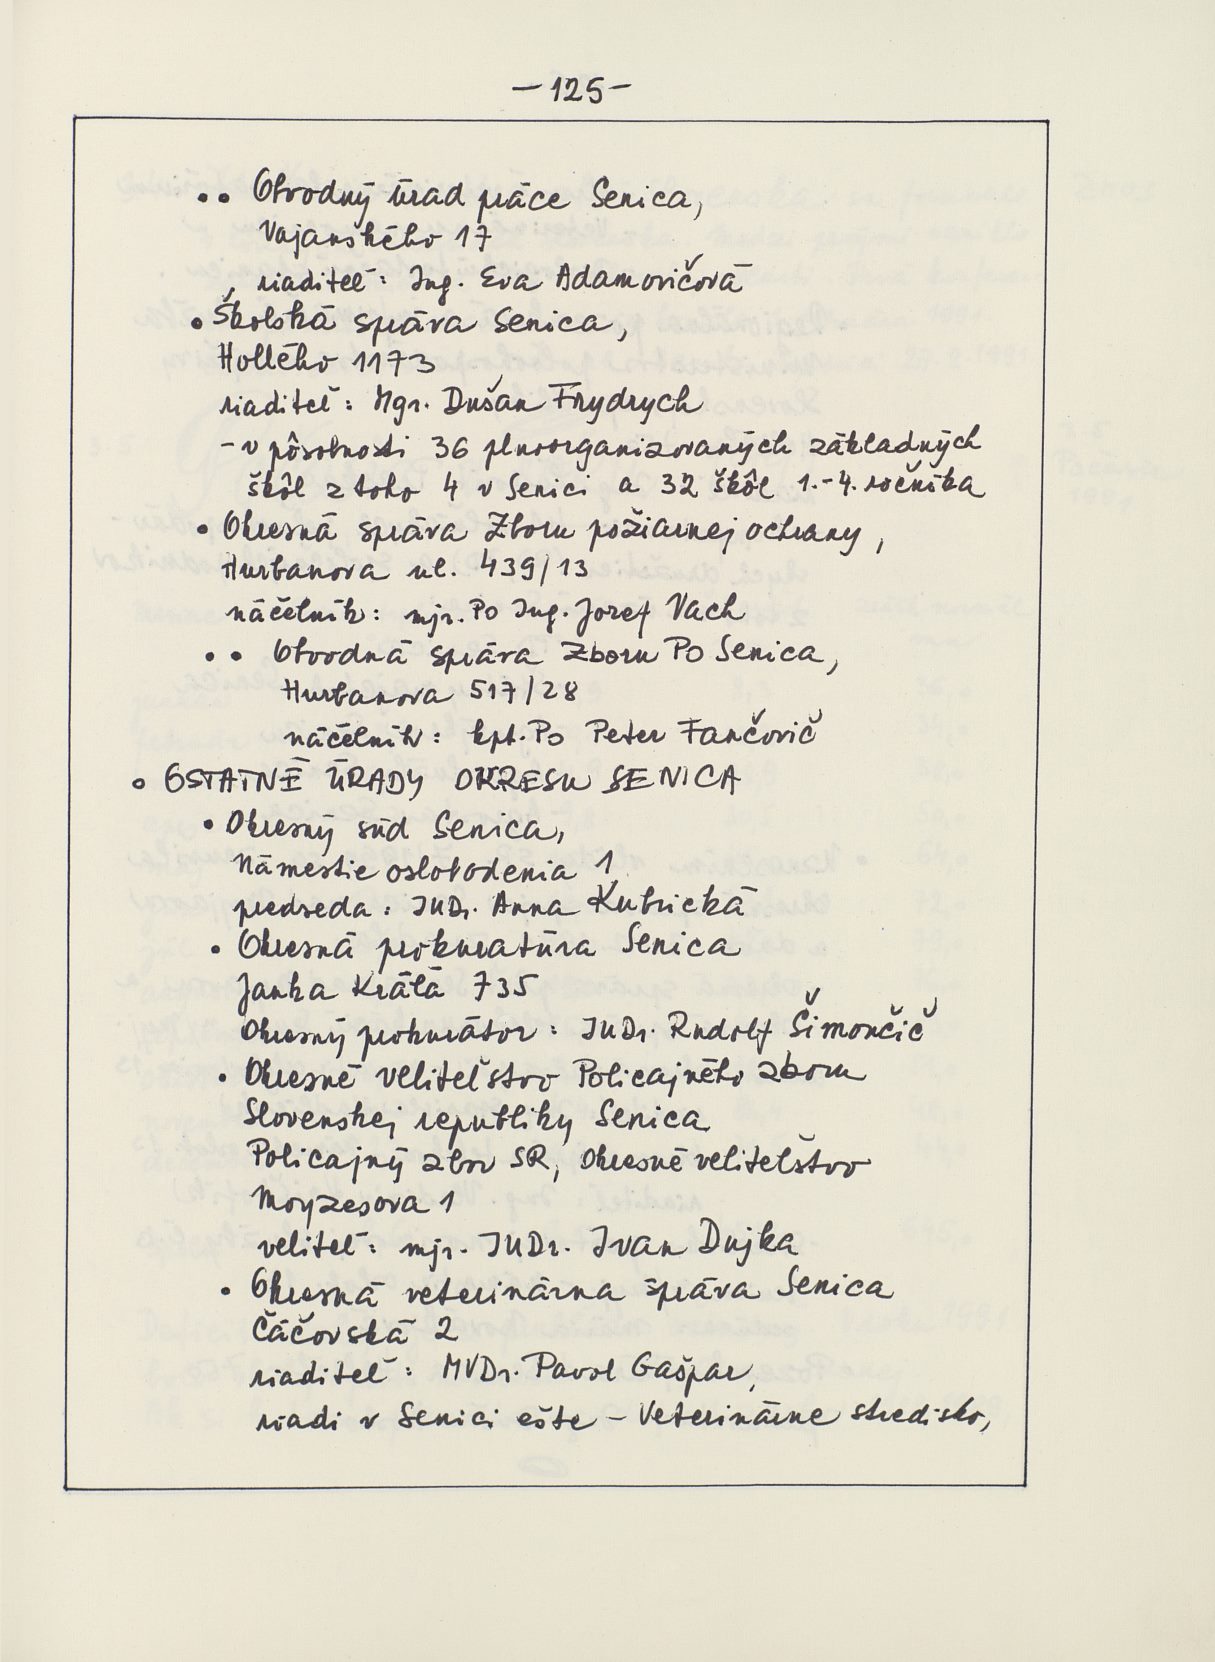 – 125 –
•• Obvodný úrad práce Senica,
Vajanského 17
riaditeľ: Ing. Eva Adamovičová
• Školská správa Senica,
Hollého 1173
riaditeľ: Mgr. Dušan Frydrych
– v pôsobnosti 36 plnoorganizovaných základných
škôl z toho 4 v Senici a 32 škôl 1.-4. ročníka
• Okresná správa Zboru požiarnej ochrany,
Hurbanova ul. 439/13
náčelník: mjr. PO Ing. Jozef Vach
•• Obvodná správa Zboru PO Senica,
Hurbanova 517/28
náčelník: kpt. PO Peter Fančovič
• OSTATNÉ ÚRADY OKRESU SENICA
• Okresný súd Senica,
Námestie oslobodenia 1
predseda: JUDr. Anna Kubrická
• Okresná prokuratúra Senica
Janka Kráľa 735
Okresný prokurátor: JUDr. Rudolf Šimončič
• Okresné veliteľstvo Policajného zboru
Slovenskej republiky Senica
Policajný zbor SR, Okresné veliteľstvo
Moyzesova 1
veliteľ: mjr. JUDr. Ivan Dujka
• Okresná veterinárna správa Senica
Čáčovská 2
riaditeľ: MVDr. Pavol Gašpar,
riadi v Senici ešte – Veterinárne stredisko,